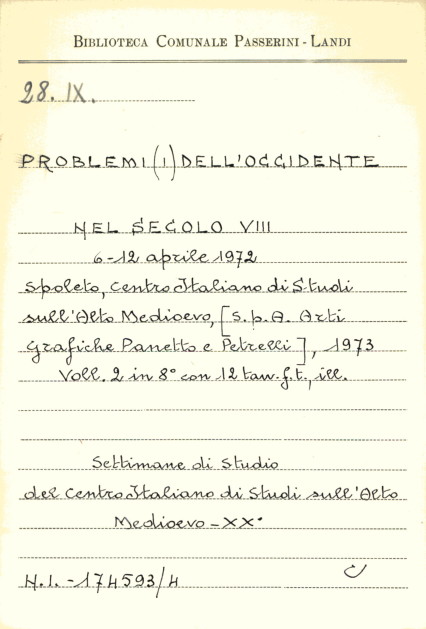 BIBLIOTECA COMUNALE PASSERINI - LANDI
28. IX.
PROBLEMI (I) DELL'OCCIDENTE
NEL SECOLO VIII
6-12 aprile 1972
Spoleto, Centro Italiano di Studi
sull'Alto Medioevo, [S.p.A. Arti
Grafiche Panetto e Petrelli], 1973
Voll. 2 in 8° con 12 tav. f.t., ill.
Settimane di Studio
del Centro Italiano di Studi sull'Alto
Medioevo - XX°
N.I. - 174593/4